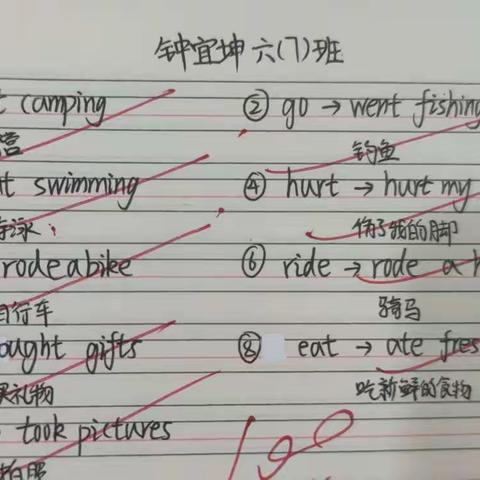 钟宜坤 六(7)班
camping ② go → went fishing
营 钓鱼
swimming ④ hurt → hurt my
游泳 伤了我的脚
rode a bike ⑥ ride → rode a h
自行车 骑马
ought gifts ⑧ eat → ate fres
礼物 吃新鲜的食物
took pictures
拍照
100